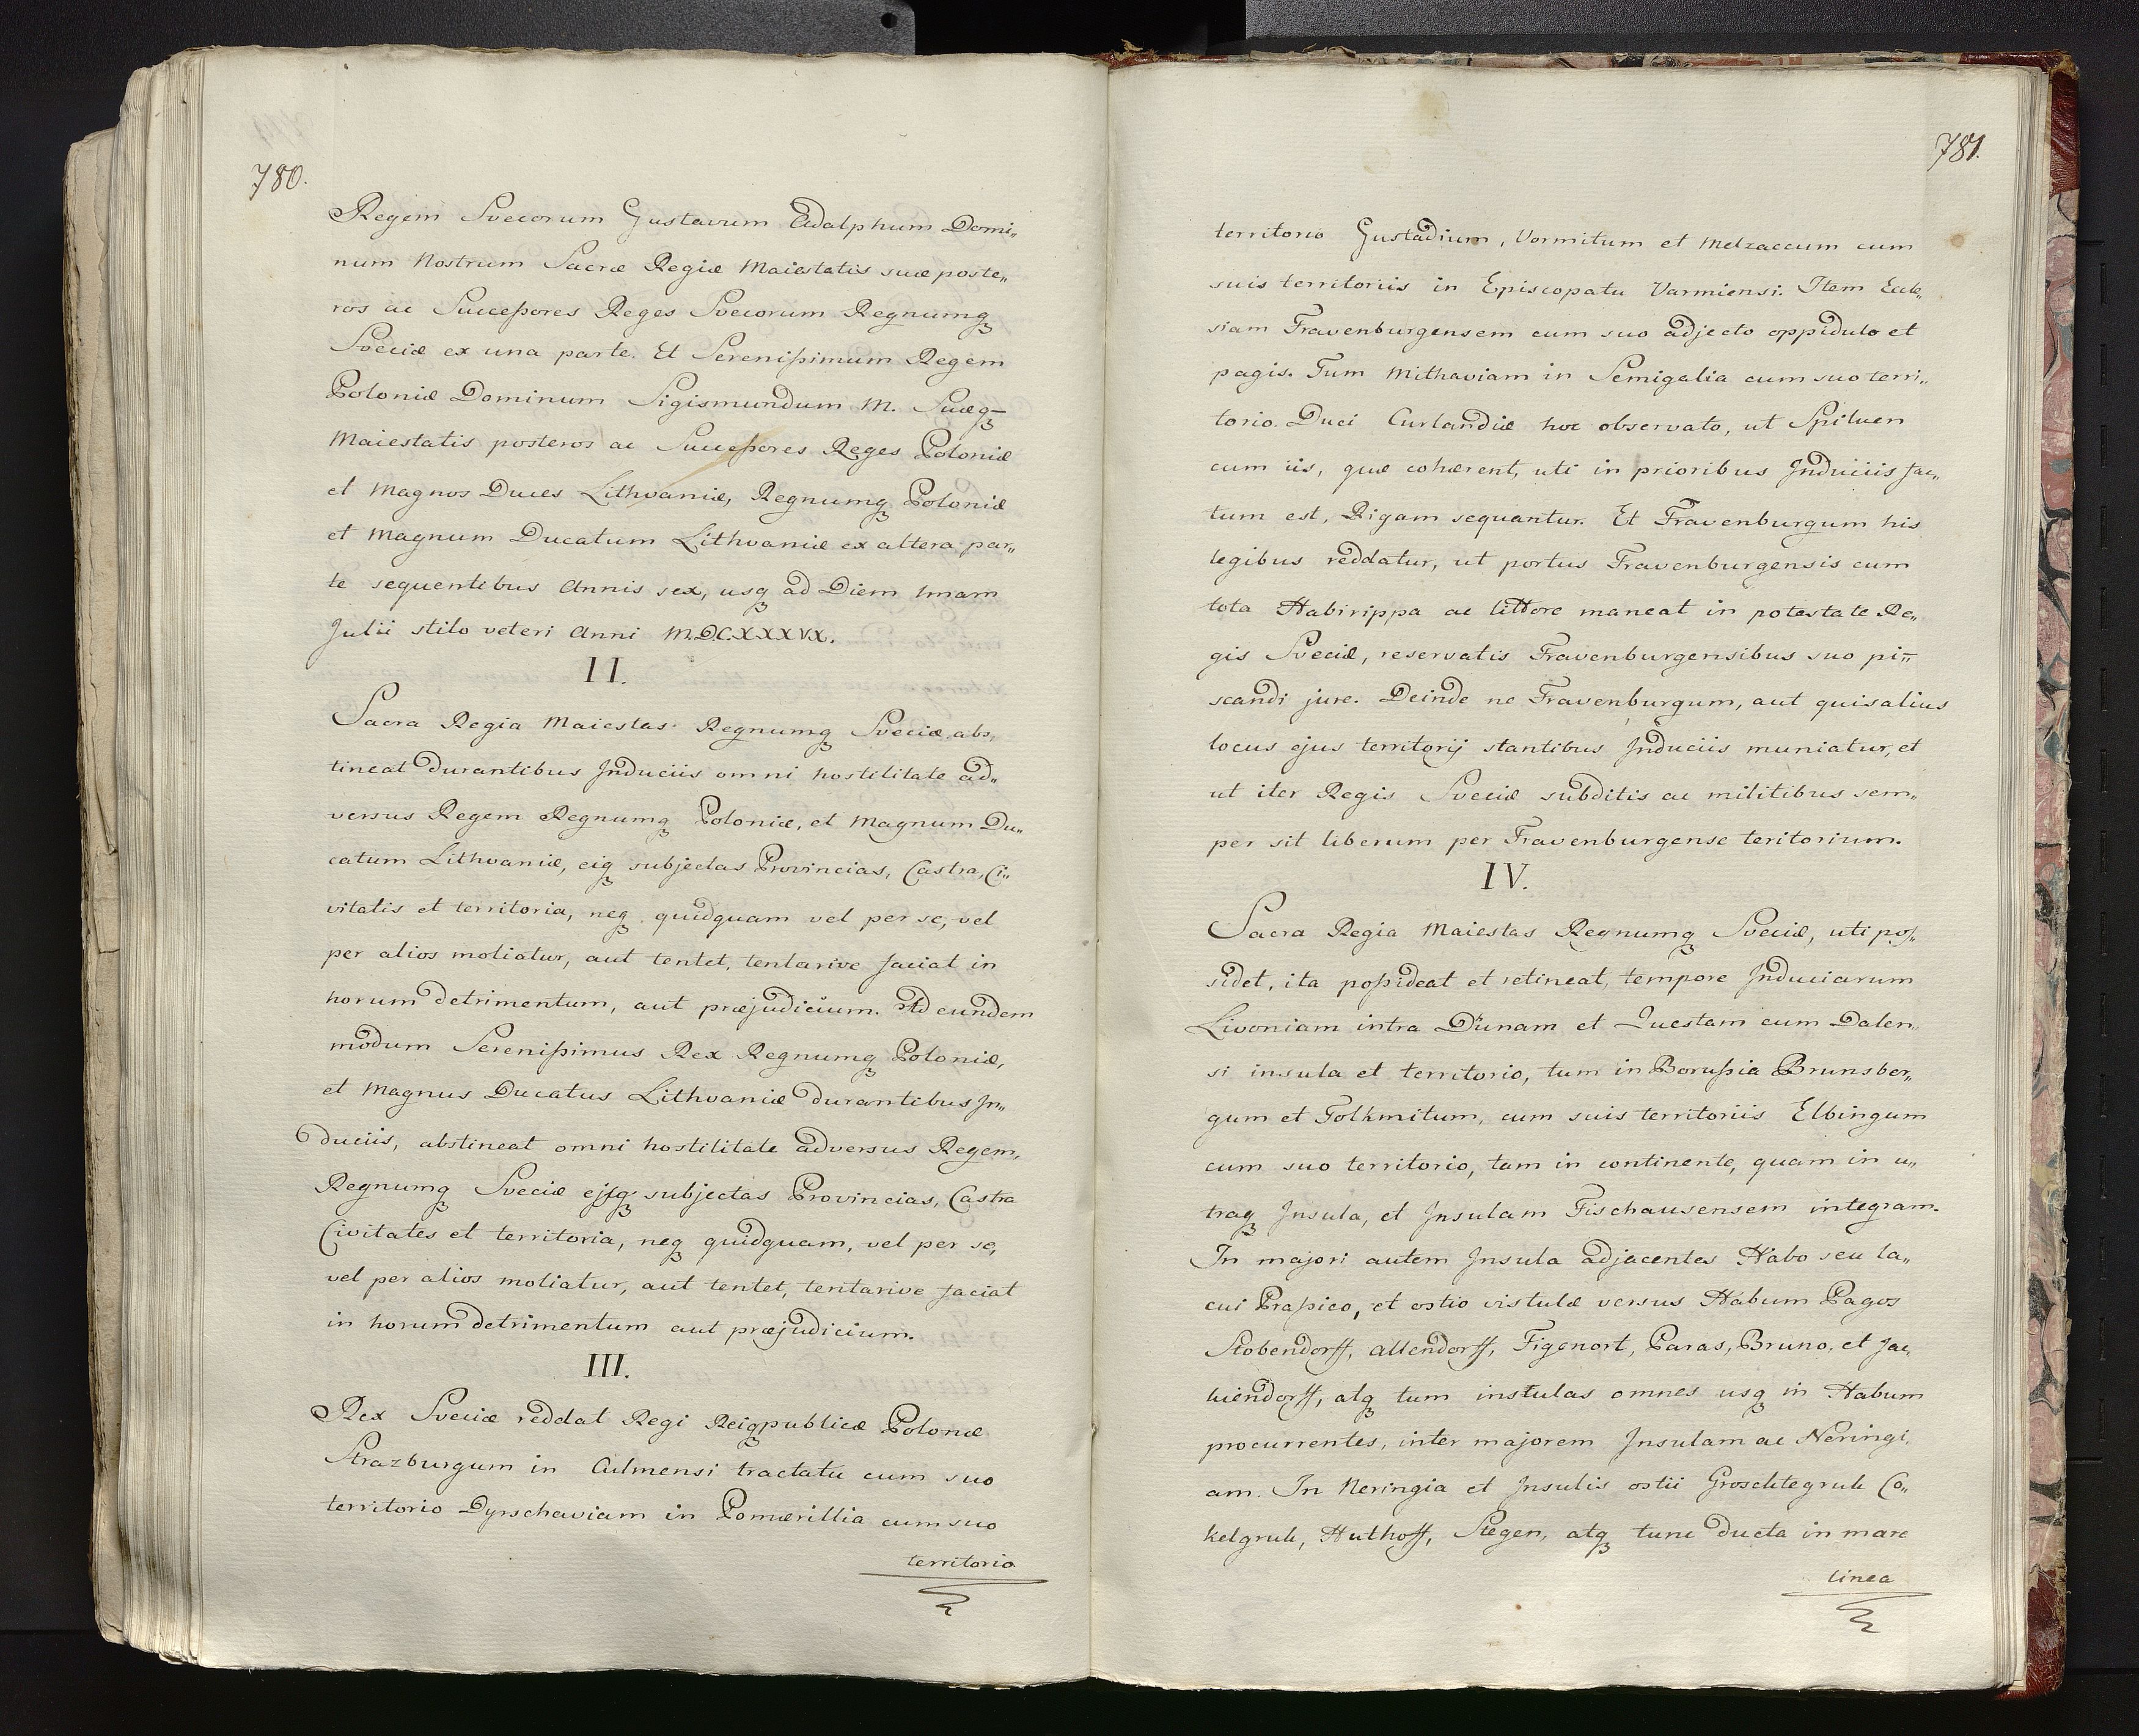 780.
Regem Svecorum Gustavum Adalphum Domi„
num Nostrum Sacræ Regiæ Maiestatis suæ poste„
ros ac Succeßores Reges Svecorum Regnumq̢
Sveciæ ex una parte. Et Serenißimum Regem
Poloniæ Dominum Sigismundum M. Suæq̢
Maiestatis posteros ac Succeßores Reges Poloniæ
et Magnos Duces Lithvaniæ, Regnumq̢ Poloniæ
et Magnum Ducatum Lithvaniæ ex altera par„
te sequentibus Annis sex, usq̢ ad Diem 1mam
Julii stilo veteri Anni M.D.C.XXXVX.
II.
Sacra Regia Maiestas Regnumq̢ Sveciæ abs„
tineat durantibus Induciis omni hostilitate ad„
versus Regem Regnumq̢ Poloniæ, et Magnum Du„
catum Lithvaniæ, eiq̢ subjectas Provincias, Castra, Ci„
vitatis et territoria, neq̢ quidquam vel per se, vel
per alios moliatur, aut tentet, tentarive faciat in
horum detrimentum, aut præjudicium. Ad eundem
modum Serenißimus Rex Regnumq̢ Poloniæ,
et Magnus Ducatus Lithvaniæ durantibus In„
duciis, abstineat omni hostilitate adversus Regem,
Regnumq̢ Sveciæ ejsq̢ subjectas Provincias, Castra
Civitates et territoria, neq̢ quidquam, vel per se,
vel per alios moliatur, aut tentet, tentarive faciat
in horum detrimentum aut præjudicium.
III.
Rex Sveciæ reddat Regi Reiq̢publicæ Polonæ
Strazburgum in Culmensi tractatu cum suo
territorio Dyrschaviam in Pomærillia cum suo
territorio
781.
territorio Gustadium, Vormitum et Melzaccum cum
suis territoriis in Episcopatu Varmiensi. Item Eccle„
siam Fravenburgensem cum suo adjecto oppidulo et
pagis. Tum Mithaviam in Semigalia cum suo terri„
torio. Duci Curlandiæ hoc observato, ut Spiluen
cum iis, quæ cohærent, uti in prioribus Induciis fac„
tum est, Rigam sequantur. Et Fravenburgum his
legibus reddatur, ut portus Fravenburgensis cum
tota Habirippa ac littore maneat in potestate Re„
gis Sveciæ, reservatis Fravenburgensibus suo pi„
scandi jure. Deinde ne Fravenburgum, aut quis alius
locus ejus territorij stantibus Induciis muniatur, et
ut iter Regis Sveciæ subditis ac militibus sem„
per sit liberum per Fravenburgense teritorium.
IV.
Sacra Regia Maiestas Regnumq̢ Sveciæ, uti pos„
sidet, ita poßideat et retineat, tempore Induciarum
Livoniam intra Dünam et Questam cum Dalen„
si insula et territorio, tum in Borußia Brunsber„
gum et Tolkmitum, cum suis territoriis Elbingum
cum suo territorio, tam in continente, quam in u„
traq̢ Insula, et Insulam Fischausensem integram.
In majori autem Insula adjacentes Habo seu la„
cui Praßico, et ostio vistulæ versus Habum Pagos
Stobendorff, Allendorff, Figenort, Paras, Bruno, et Jac„
kiendorff, atq̢ tum instulas omnes usq̢ in Habum
procurrentes, inter majorem Insulam ac Neringi„
am. In Neringia et Insulis ostii Groschtegrub Co„
kelgrub, Huthoff, Stegen, atq̢ tunc ducta in mare
linea